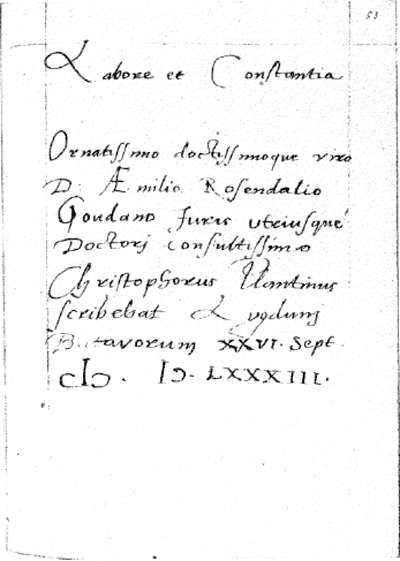 53
Labore et Constantia
Ornatissimo doctissimoque viro
D. Æmilio Rosendalio
Goudano Juris utriusque
Doctori Consultissimo
Christophorus Plantinus
scribebat Lugduni
Batavorum XXVI. Sept.
CIↃ. IↃ. LXXXIII.